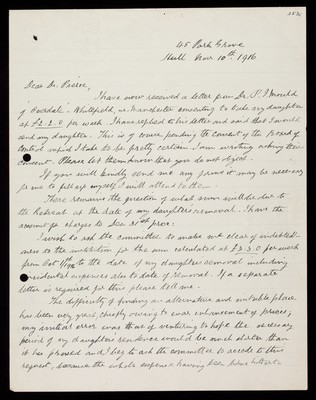 45 Park Grove
Hull Novr 10th. 1916
Dear Dr. Pierce,
I have now received a letter from Dr. P. I. Mould
of Overdale Whitefield, nr. Manchester consenting to take my daughter
at £2.2.0 per week. I have replied to his letter and said that I would
send my daughter. This is of course pending the consent of the Board of
Control which I take to be pretty certain. I am writing asking their
consent. Please let them know that you do not object.
If you will kindly send me any forms it may be necessary
for me to fill up myself I will attend to them.
There remains the question of what sum will be due to
the Retreat at the date of my daughter's removal. I have the
account for charges to Dec 31st prox:
I wish to ask the committee to make me clear of indebted-
ness to the institution for the sum calculated at £3.3.0 per week
from Oct 1/1916 to the date of my daughter's removal including
incidental expenses also to date of removal. If a separate
letter is required for this please tell me.
The difficulty of finding an alternative and suitable place
has been very great, chiefly owing to war enhancement of prices;
my initial error was that of venturing to hope the necessary
period of my daughter's residence would be much shorter than
it has proved and I beg to ask the committee to accede to this
request, because the whole expense having been borne hitherto